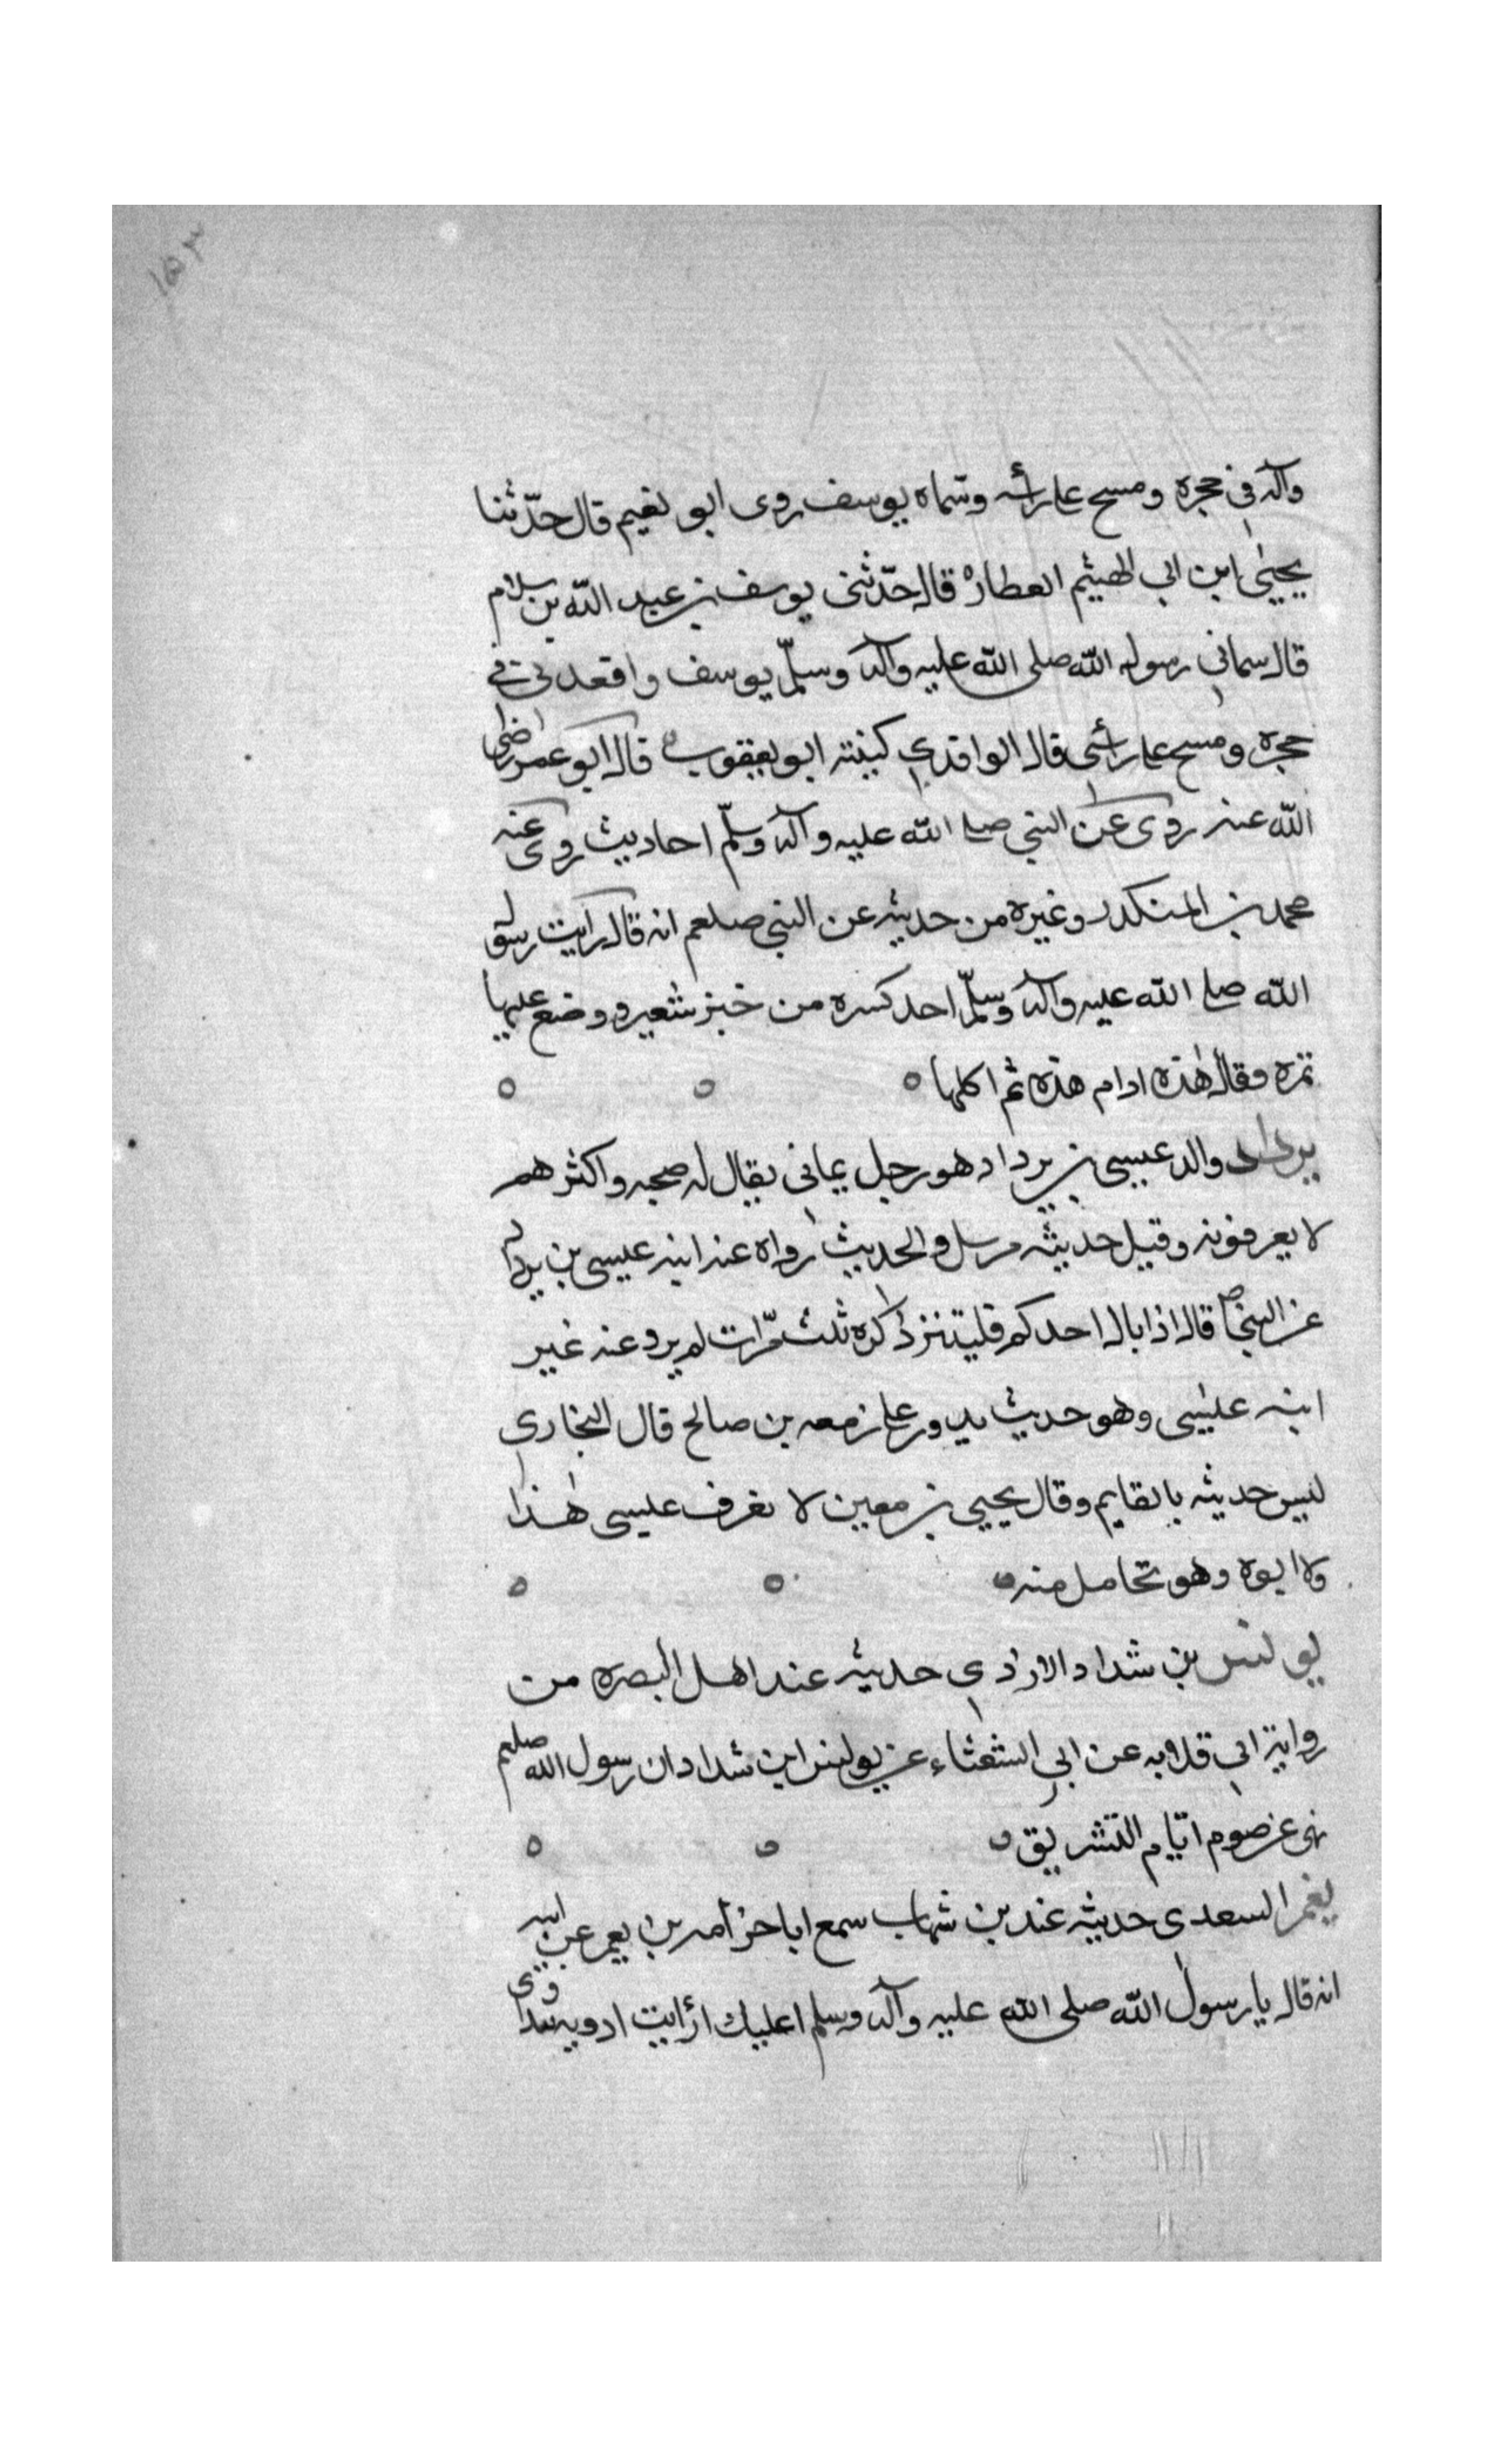 ١٥٣
وآله في حجره ومسح على رأسه وسماه يوسف روى ابو نعيم قال حدّثنا
يحيى ابن ابي الهيثم العطار قال حدّثنى يوسف بن عبد الله بن سلام
قال سماني رسول الله صلى الله عليه وآله وسلّم يوسف واقعدنى في
حجره ومسح على رأسى قال الواقدي كنيته ابو يعقوب قال ابو عمر رضى
الله عنه روى عن النبي صلى الله عليه وآله وسلّم احاديث روى عنه
محمد بن المنكدر وغيره من حديثه عن النبي صلعم انه قال رايت رسول
الله صلى الله عليه وآله وسلّم احد كسره من خبز شعير ووضع عليها
تمره وقال هذه ادام هذه ثم اكلها
يرداد والد عيسى بن يرداد هو رجل يمانى يقال له صحبه واكثرهم
لا يعرفونه وقيل حديثه مرسل والحديث رواه عنه ابنه عيسى بن يرداد
عن النبي ص قال اذا بال احدكم فليتنز ذكره ثلث مّرات لم يرو عنه غير
ابنه عيسى وهو حديث يدور على زمعه بن صالح قال البخاري
ليس حديثه بالقايم وقال يحيي بن معين لا نعرف عيسى هٰذا
ولا ابوه وهو تحامل منه
يونس بن شداد الازدي حديثه عند اهل البصره من
رواية ابي قلابه عن ابي الشعثاء عن يونس ابن شداد ان رسول الله صلعم
نهى عن صوم ايّام التشريق
يعمر السعدى حديثه عند بن شهاب سمع ابا خزامه بن يعمر عن ابيه
انه قال يا رسول الله صلى الله عليه وآله وسلم اعليك ارأيت ادويه نتداوى